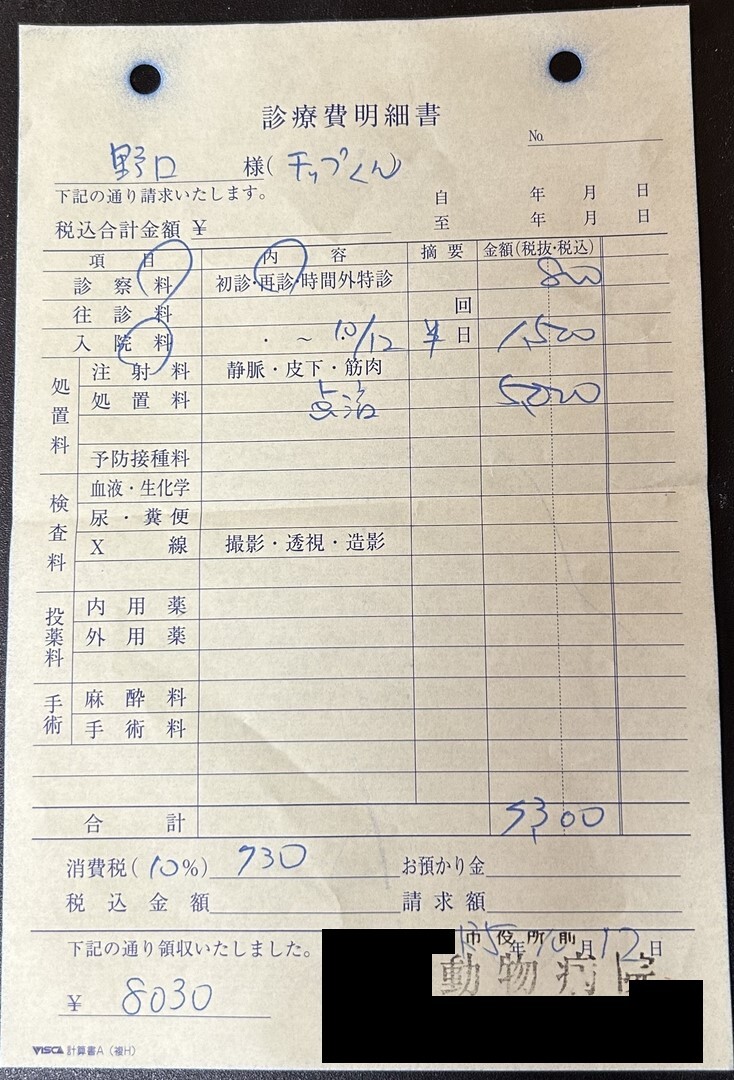 診療費明細書
No.
野口 様(チップくん)
下記の通り請求いたします。
自 年 月 日
税込合計金額 ¥
至 年 月 日
項目 内容 摘要 金額(税抜・税込)
診察料 初診・再診・時間外特診 800
往診料 回
入院料 ・ ~ 10/12 半日 1,500
処置料
注射料 静脈・皮下・筋肉
処置料 点滴 5,000
予防接種料
検査料
血液・生化学
尿・糞便
X線 撮影・透視・造影
投薬料
内用薬
外用薬
手術
麻酔料
手術料
合計 7,300
消費税(10%) 730 お預かり金
税込金額 請求額
下記の通り領収いたしました。 年10月12日
市役所前
動物病院
¥ 8030
VISCA 計算書A(複H)